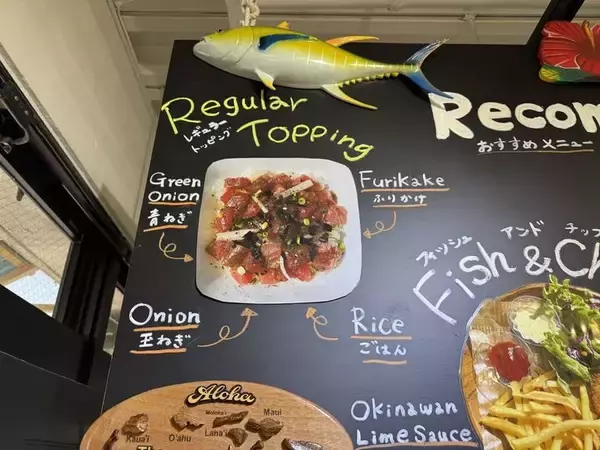 Regular
レギュラー
トッピング
Topping
Green
Onion
青ねぎ
Furikake
ふりかけ
Onion
玉ねぎ
Rice
ごはん
Recom
おすすめメニュー
フィッシュ アンド チップ
Fish & Ch
Okinawan
Lime Sauce
Aloha
Kaua'i
O'ahu
Moloka'i
Lana'i
Maui